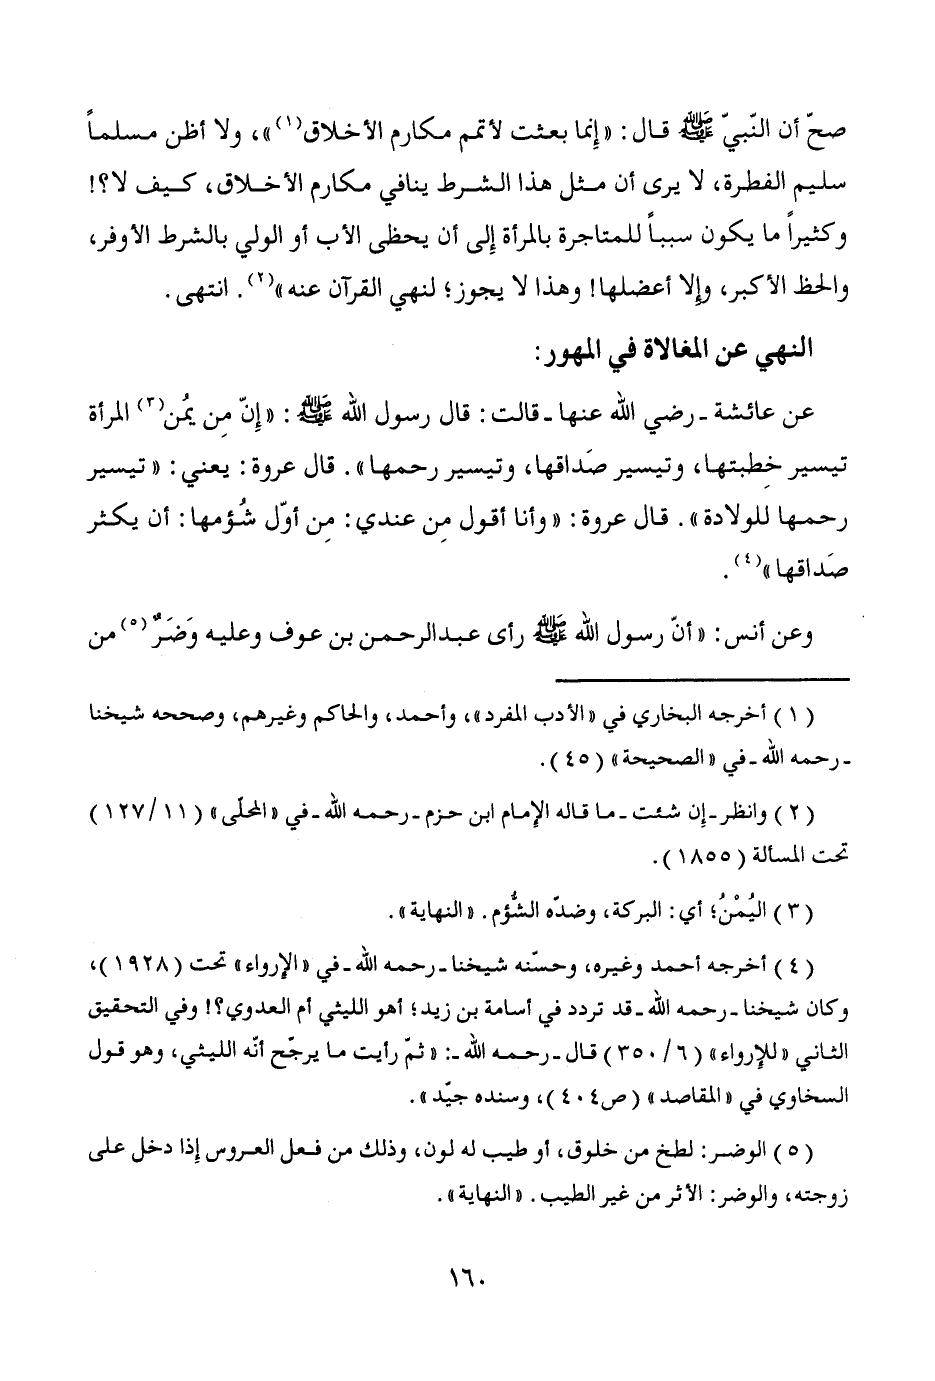 صحّ أن النّبيّ ﷺ قال: «إنما بعثت لأتمم مكارم الأخلاق(١)»، ولا أظن مسلماً
سليم الفطرة، لا يرى أن مثل هذا الشرط ينافي مكارم الأخلاق، كيف لا؟!
وكثيراً ما يكون سبباً للمتاجرة بالمرأة إلى أن يحظى الأب أو الولي بالشرط الأوفر،
والحظ الأكبر، وإلا أعضلها! وهذا لا يجوز؛ لنهي القرآن عنه»(٢). انتهى.
النهي عن المغالاة في المهور:
عن عائشة ـ رضي الله عنها ـ قالت: قال رسول الله ﷺ: «إنّ مِن يُمن(٣) المرأة
تيسير خِطبتها، وتيسير صَداقها، وتيسير رحمها». قال عروة: يعني: «تيسير
رحمها للولادة». قال عروة: «وأنا أقول مِن عندي: مِن أوّل شُؤمها: أن يكثر
صَداقها»(٤).
وعن أنس: «أنّ رسول الله ﷺ رأى عبدالرحمن بن عوف وعليه وَضَرٌ(٥) من
(١) أخرجه البخاري في «الأدب المفرد»، وأحمد، والحاكم وغيرهم، وصححه شيخنا
ـ رحمه الله ـ في «الصحيحة» (٤٥).
(٢) وانظر ـ إن شئت ـ ما قاله الإمام ابن حزم ـ رحمه الله ـ في «المحلّى» (١١/ ١٢٧)
تحت المسألة (١٨٥٥).
(٣) اليُمْنُ؛ أي: البركة، وضدّه الشُّؤم. «النهاية».
(٤) أخرجه أحمد وغيره، وحسّنه شيخنا ـ رحمه الله ـ في «الإرواء» تحت (١٩٢٨)،
وكان شيخنا ـ رحمه الله ـ قد تردد في أسامة بن زيد؛ أهو الليثي أم العدوي؟! وفي التحقيق
الثاني «للإرواء» (٦/ ٣٥٠) قال ـ رحمه الله ـ: «ثمّ رأيت ما يرجّح أنّه الليثي، وهو قول
السخاوي في «المقاصد» (ص٤٠٤)، وسنده جيّد».
(٥) الوضر: لطخ من خلوق، أو طيب له لون، وذلك من فعل العروس إذا دخل على
زوجته، والوضر: الأثر من غير الطيب. «النهاية».
١٦٠